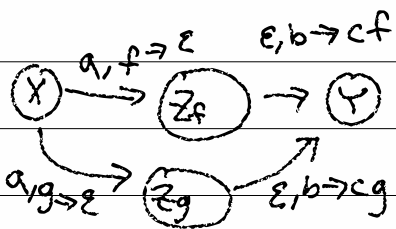 a, f → ε
ε, b → cf
X
Z_f
Y
a, g → ε
Z_g
ε, b → cg